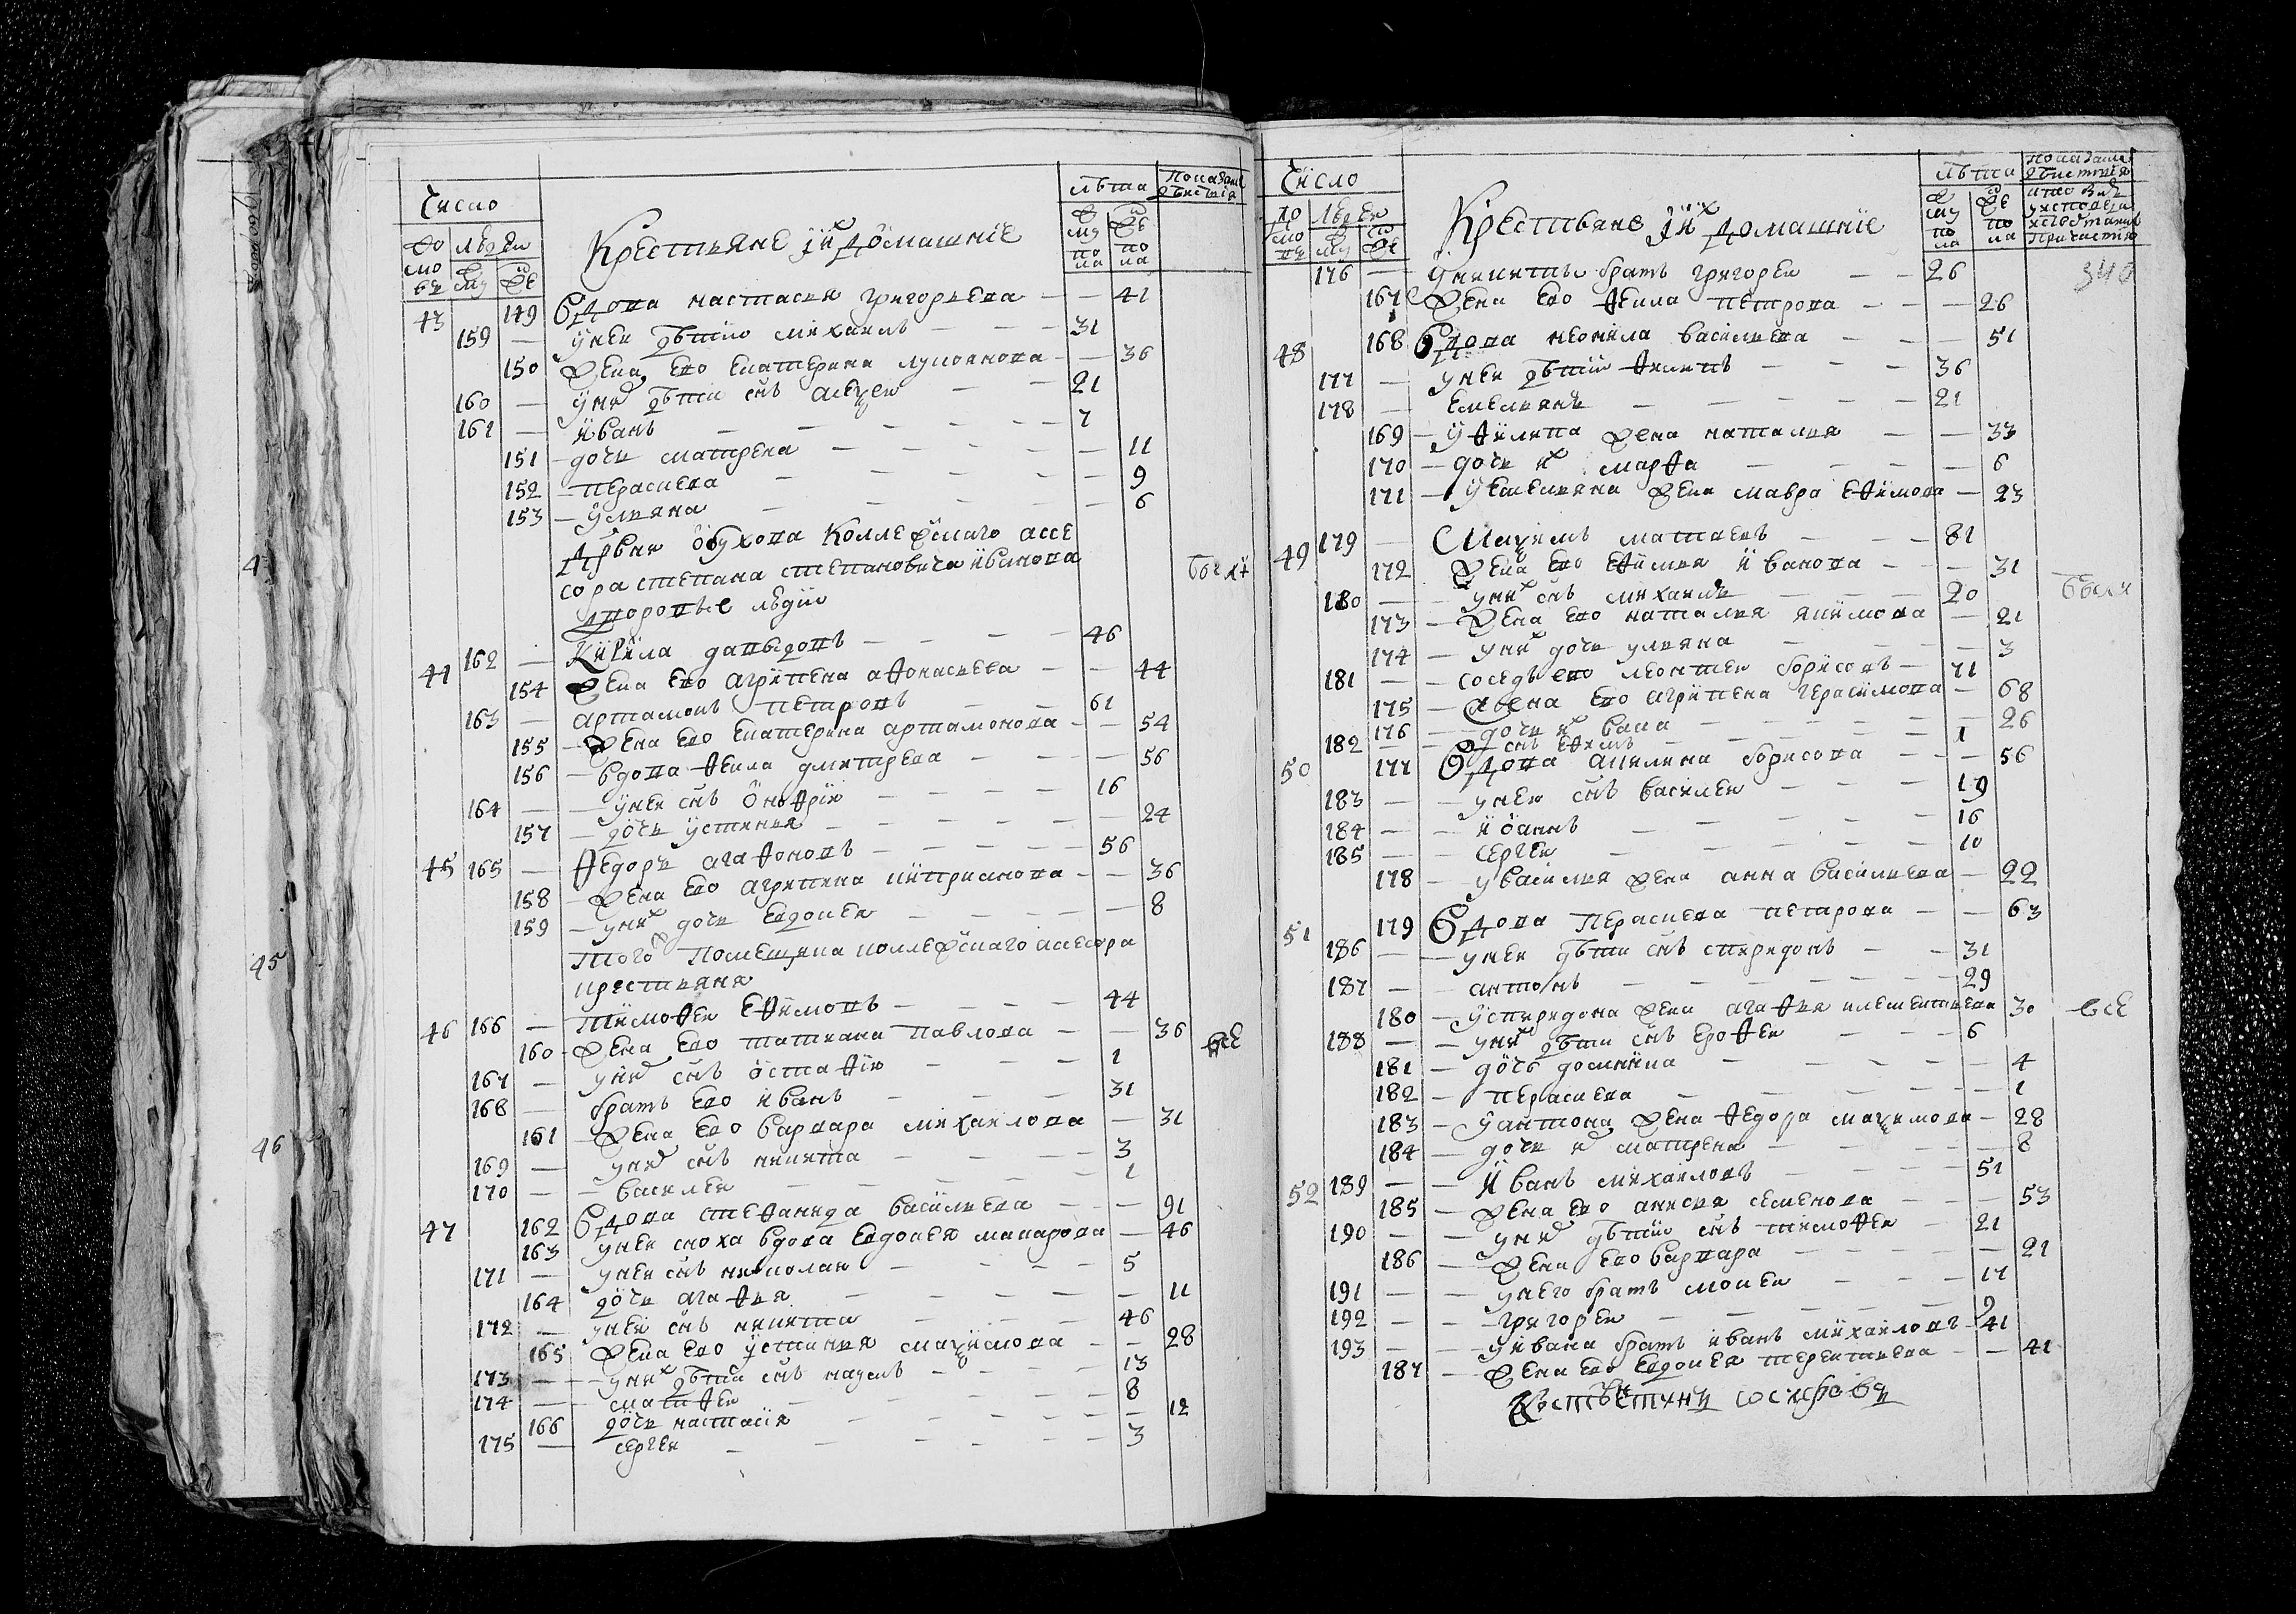 Число
Крестьяне и ихъ домашние
лѣта
показание действия
дворовъ
людей
муж
жен
муж пола
жен пола
43 149 Вдова настасья григорьева 41
159 у неи дѣти михаилъ 31
150 жена ево екатерина лукоянова 36
160 у них дѣти снъ алеѯеи 21
161 иванъ 7
151 дочь матрена 11
152 перасковя 9
153 улияна 6
Дрвни обухова коллежскаго ассе
сора степана степановича иванова
дворовые люди
44 162 Кирила давыдовъ 46
154 жена ево агрипена афонасьева 44
163 артамонъ петровъ 61
155 жена ево екатерина артамонова 54
156 вдова фекла дмитрева 56
164 у неи снъ онофрiи 16
157 дочь устинья 24
45 165 федоръ агафоновъ 56
158 жена ево агрипена киприянова 36
159 у них дочь евдокея 8
того помещика коллежскаго асесора
крестьяня
46 166 тимофеи ефимовъ 44
160 жена ево татиана павлова 36 все
167 у них снъ остафiи 1
168 братъ ево иванъ 31
161 жена ево варвара михаилова 31
169 у них снъ никита 3
170 василеи 1
47 162 Вдова стефанида василиева 91
163 у неи сноха вдова евдокея макарова 46
171 у неи снъ николаи 5
164 дочь агафия 11
172 у неи снъ никита 46
165 жена ево устинья маѯимова 28
173 у них дѣти снъ наумъ 13
174 матфеи 8
166 дочь настасiя 12
175 сергеи 3
Число
Крестьяне и ихъ домашние
лѣта
176 у никиты братъ григореи 26
340
167 жена ево фекла петрова 26
48 168 Вдова неонила василиева 51
177 у неи дѣти филипъ 36
178 емельянъ 21
169 у филипа жена наталья 33
170 дочь их марфа 6
171 у емельяна жена мавра ефимова 23
49 179 Маѯимъ матвеевъ 81
172 жена ево ефимия иванова 31
180 у них снъ михаилъ 20
173 жена ево наталья якимова 21
174 у них дочь улияна 3
181 соседъ ево леонтеи борисовъ 71
175 жена ево агрипена герасимова 68
176 дочь их васа 26
182 снъ ефимъ 1
50 177 Вдова акилина борисова 56
183 у неи снъ василеи 19
184 иоаннъ 16
185 сергеи 10
178 у василия жена анна василиева 22
51 179 Вдова перасковя петрова 63
186 у неи дѣти снъ спиридонъ 31
187 антонъ 29
180 у спиридона жена агафия клементиева 30 все
188 у них дѣти снъ ерофеи 6
181 дочь домника 4
182 перасковя 1
183 у антона жена федора маѯимова 28
184 дочь их матрена 8
52 189 Иванъ михаиловъ 51
185 жена ево анисия семенова 53
190 у них дѣти снъ тимофеи 21
186 жена ево варвара 21
191 у него братъ мокеи 17
192 григореи 9
193 у ивана братъ иванъ михаиловъ 41
187 жена ево евдокея терентиева 41
45
46